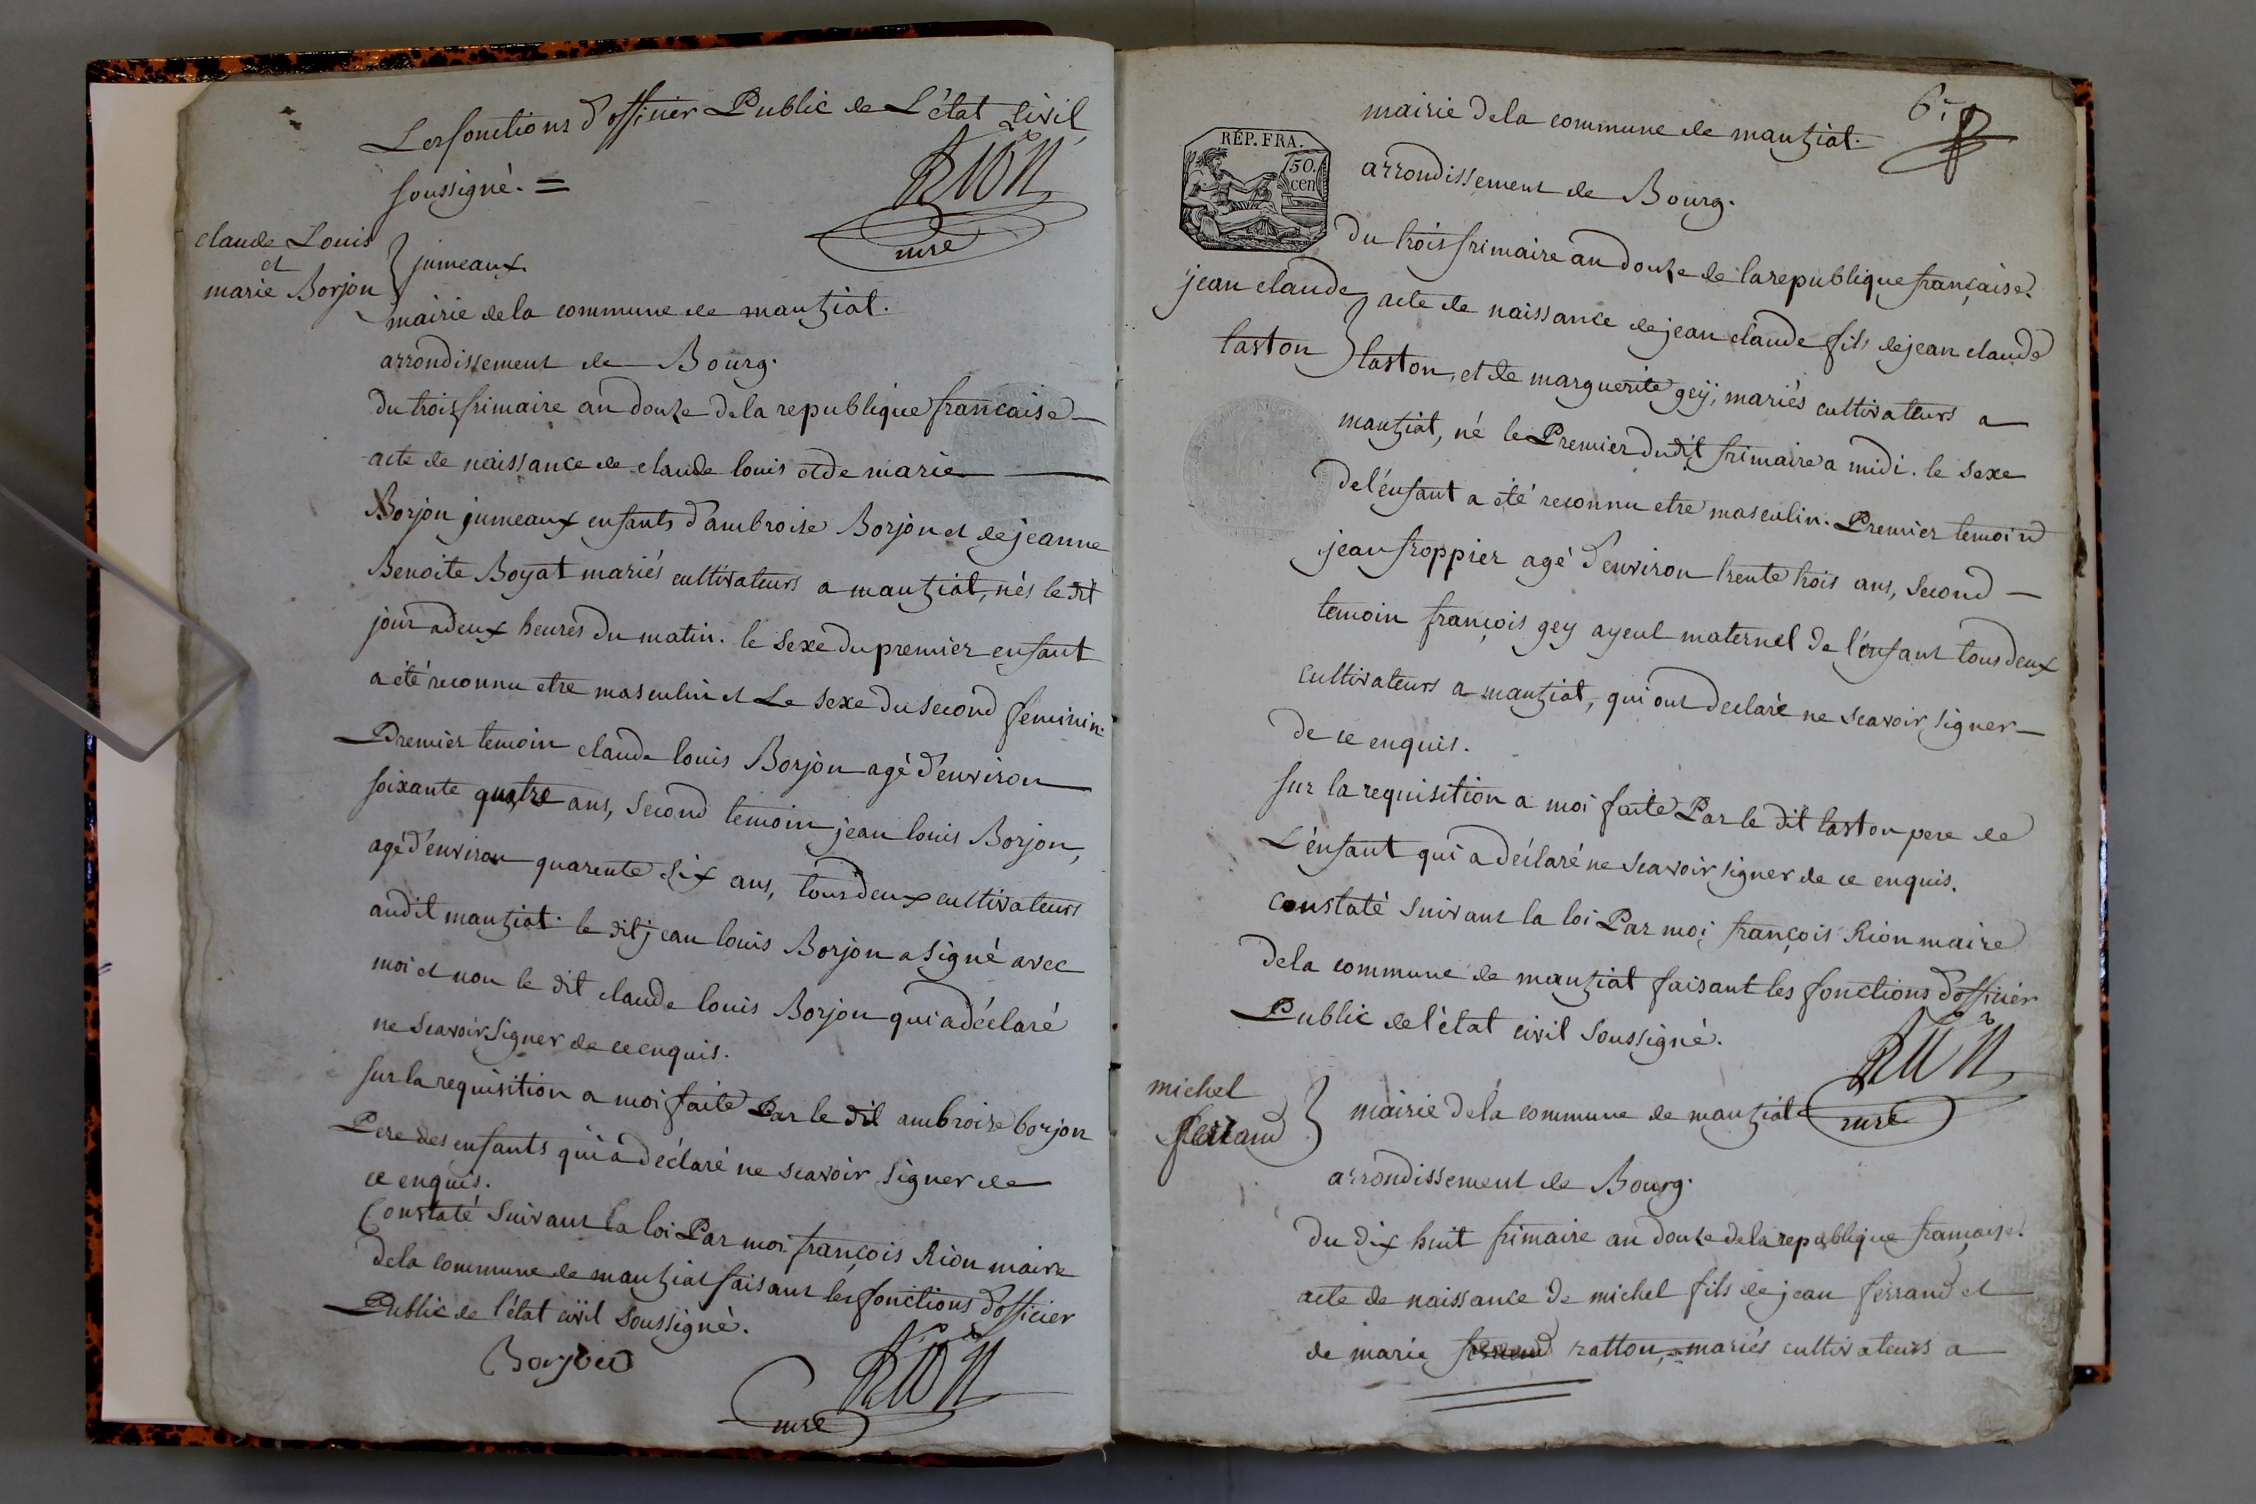 Les fonctions d'officier Public de L'état Civil
soussigné. =
RION
mre
claude Louis
et
marie Borjon
jumeaux
mairie dela commune de mantziat.
arrondissement de Bourg.
du trois frimaire an douze dela republique francaise
acte de naissance de claude louis et de marie
Borjon jumeaux enfants d'ambroise Borjon et de jeanne
Benoite Boyat mariés cultivateurs a mantziat, nés le dit
jour a deux heures du matin. le sexe du premier enfant
a été reconnu etre masculin et Le sexe du second feminin.
Premier temoin claude louis Borjon agé d'environ
soixante quatre ans, second temoin jean louis Borjon,
agé d'environ quarente six ans, tous deux cultivateurs
audit mantziat. le dit jean louis Borjon a signé avec
moi et non le dit claude louis Borjon qui a déclaré
ne scavoir signer de ce enquis.
sur la requisition a moi faite Par le dit ambroise borjon
Pere des enfants qui a déclaré ne scavoir signer de
ce enquis.
Constaté suivant la loi Par moi françois Rion maire
dela commune de mantziat faisant les fonctions d'officier
Public de l'état civil soussigné.
Borjon
RION
mre
6.
mairie dela commune de mantziat.
REP. FRA.
50.
cen
arrondissement de Bourg.
du trois frimaire an douze de la republique française.
jean claude
taston
acte de naissance de jean claude fils de jean claude
taston, et de marguerite gey, mariés cultivateurs a
mantziat, né le Premier dudit frimaire a midi. le sexe
de l'énfant a été reconnu etre masculin. Premier temoin
jean froppier agé d'environ trente trois ans, second
temoin françois gey ayeul maternel de l'énfant tous deux
cultivateurs a mantziat, qui ont declaré ne scavoir signer
de ce enquis.
sur la requisition a moi faite Par le dit taston pere de
L'énfant qui a déclaré ne scavoir signer de ce enquis.
constaté suivant la loi Par moi françois Rion maire
dela commune de mantziat faisant les fonctions d'officier
Public de l'état civil soussigné.
RION
mre
michel
ferrand
mairie dela commune de mantziat
arrondissement de Bourg.
du dix huit frimaire an douze dela republique française.
acte de naissance de michel fils de jean ferrand et
de marie ferrand ratton, mariés cultivateurs a